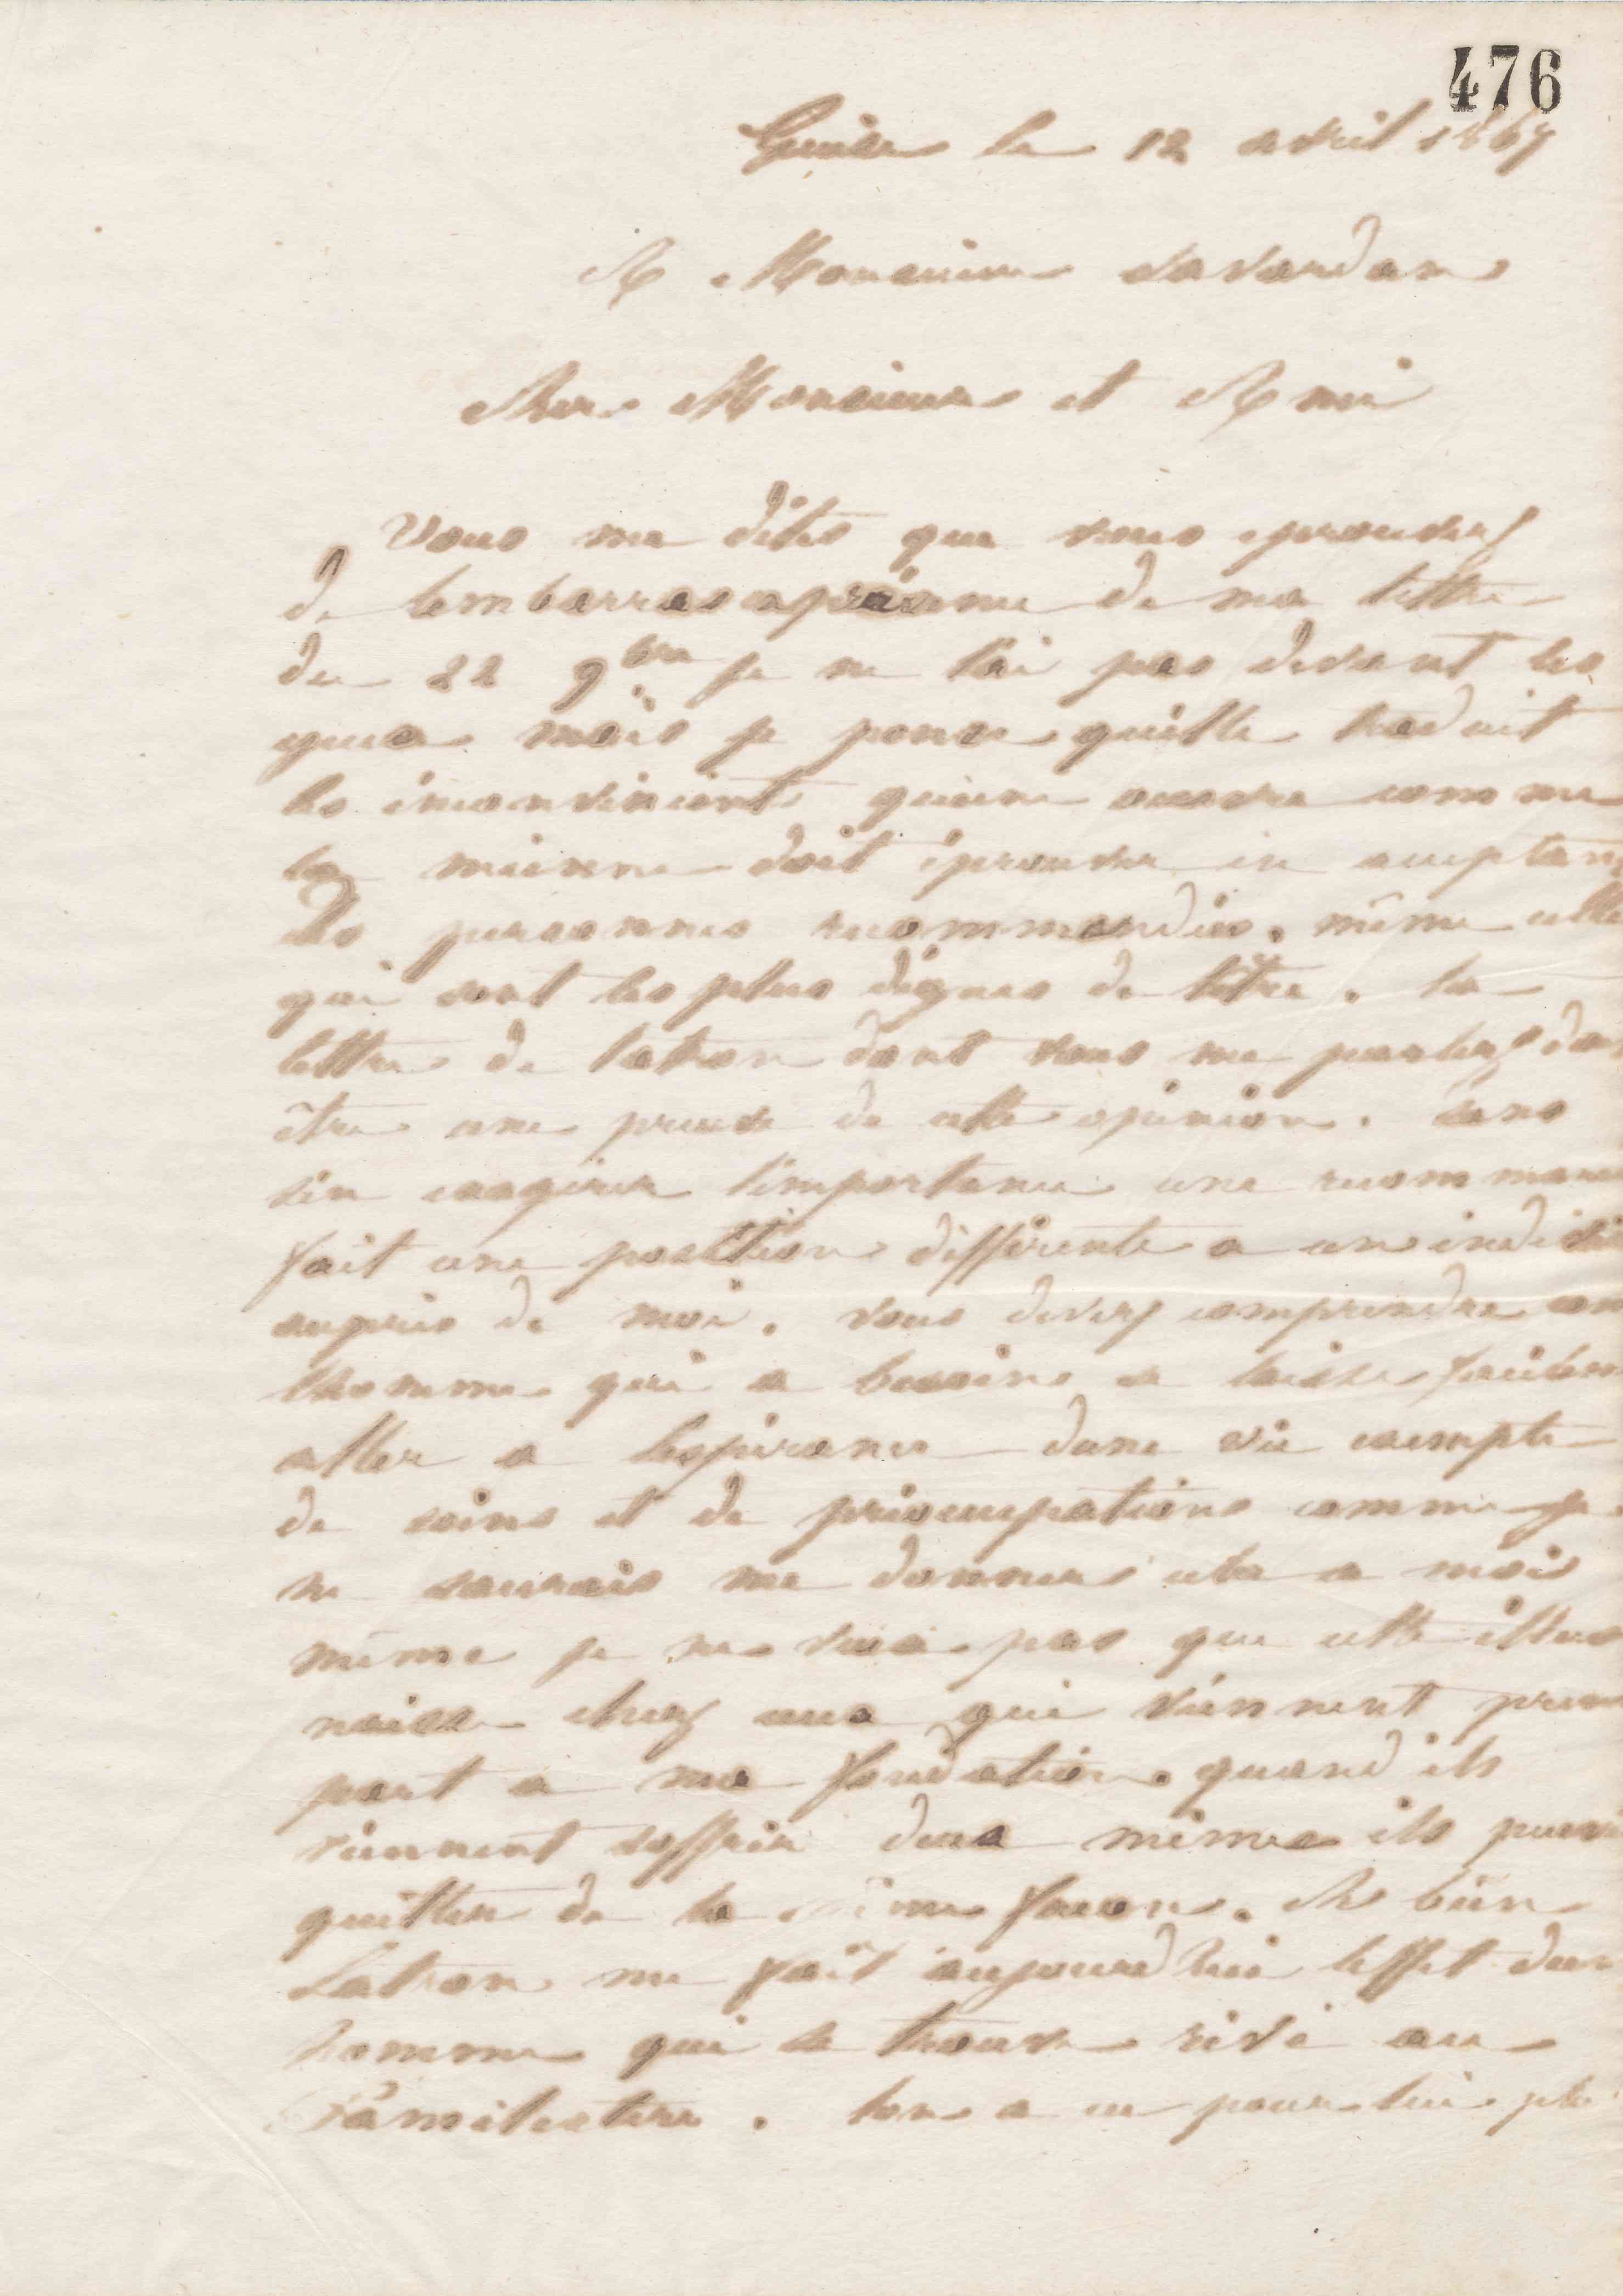 476
Guise le 12 avril 1867
A Monsieur Savardan
Cher Monsieur et Ami
Vous me dites que vous eprouvez
de lembarras a de ma lettre
du 22 9bre je ne lai pas devant les
yeux mais je pense quelle traduit
les inconvenients quune œuvre comme
la mienne doit éprouver en acceptan
des personnes recommandées. même celles
qui sont les plus dignes de lêtre. la
lettre de latron dont vous me parlez doi
être une preuve de cette opinion. sans
sen exagérer limportance une recomman
fait une position differente a un individu
auprès de moi. vous devez comprendre com
lhomme qui a besoin se laisse facilem
aller a lespérance dune vie exempte
de soins et de préoccupations comme je
ne saurais me donner cela a moi
même je ne veux pas que cette illus
naisse chez ceux qui viennent pren
part a ma fondation. quand ils
viennent soffrir deux mêmes ils peuv
quitter de la même façon. Eh bien
Latron me fait aujourdhui leffet dun
homme qui se trouve rivé au
Familistère. lon a eu pour lui plu